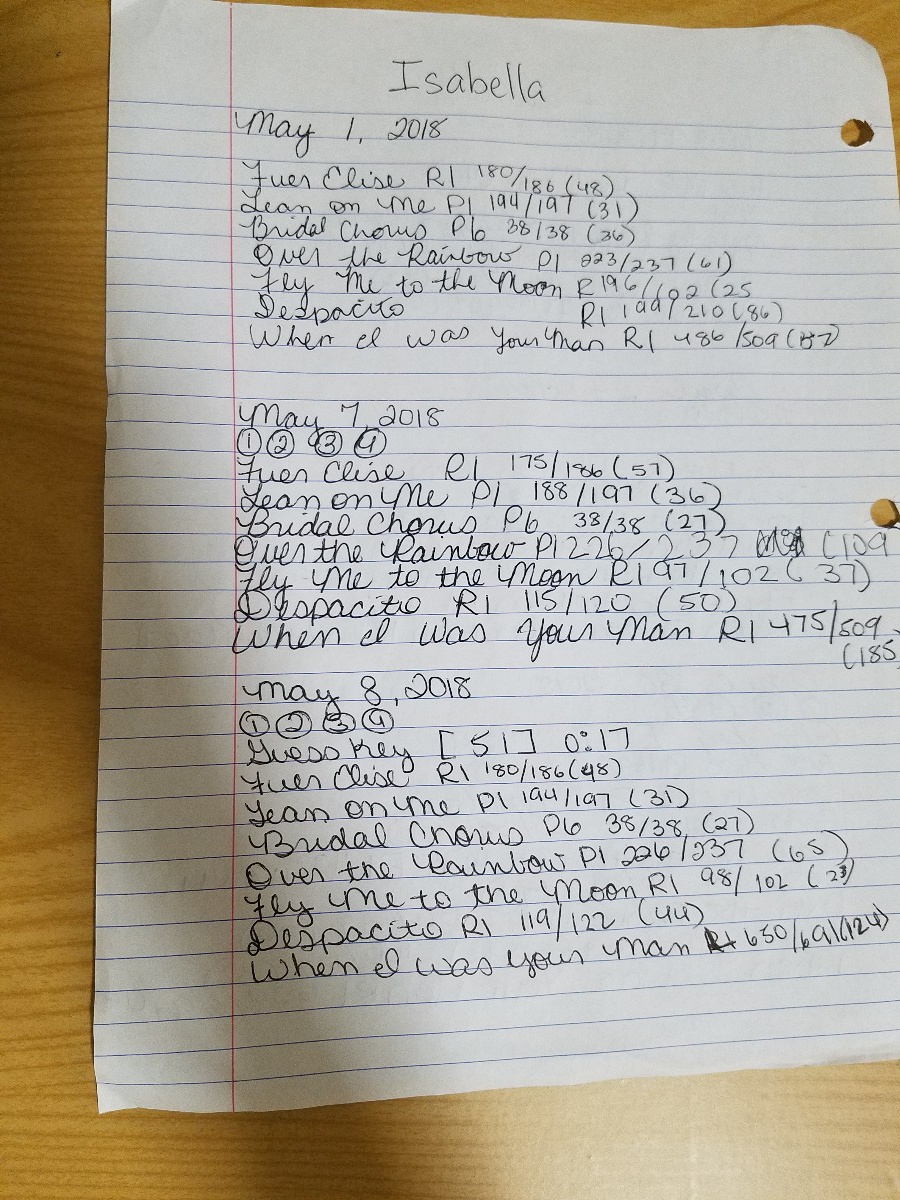 Isabella
May 1, 2018
Fuer Elise R1 180/186 (48)
Lean on Me P1 194/197 (31)
Bridal Chorus P6 38/38 (36)
Over the Rainbow P1 223/237 (61)
Fly Me to the Moon R1 96/102 (25
Despacito R1 199/210 (86)
When I was Your Man R1 486/509
May 7, 2018
① ② ③ ④
Fuer Elise R1 175/186 (57)
Lean on Me P1 188/197 (36)
Bridal Chorus P6 38/38 (27)
Over the Rainbow P1 226/237 (109
Fly Me to the Moon R1 97/102 (37)
Despacito R1 115/120 (50)
When I was Your Man R1 475/509
(185
May 8, 2018
① ② ③ ④
Guess Key [51] 0:17
Fuer Elise R1 180/186 (48)
Lean on Me P1 194/197 (31)
Bridal Chorus P6 38/38 (27)
Over the Rainbow P1 226/237 (65)
Fly Me to the Moon R1 98/102 (23)
Despacito R1 119/122 (44)
When I was your Man 650/691 (124)